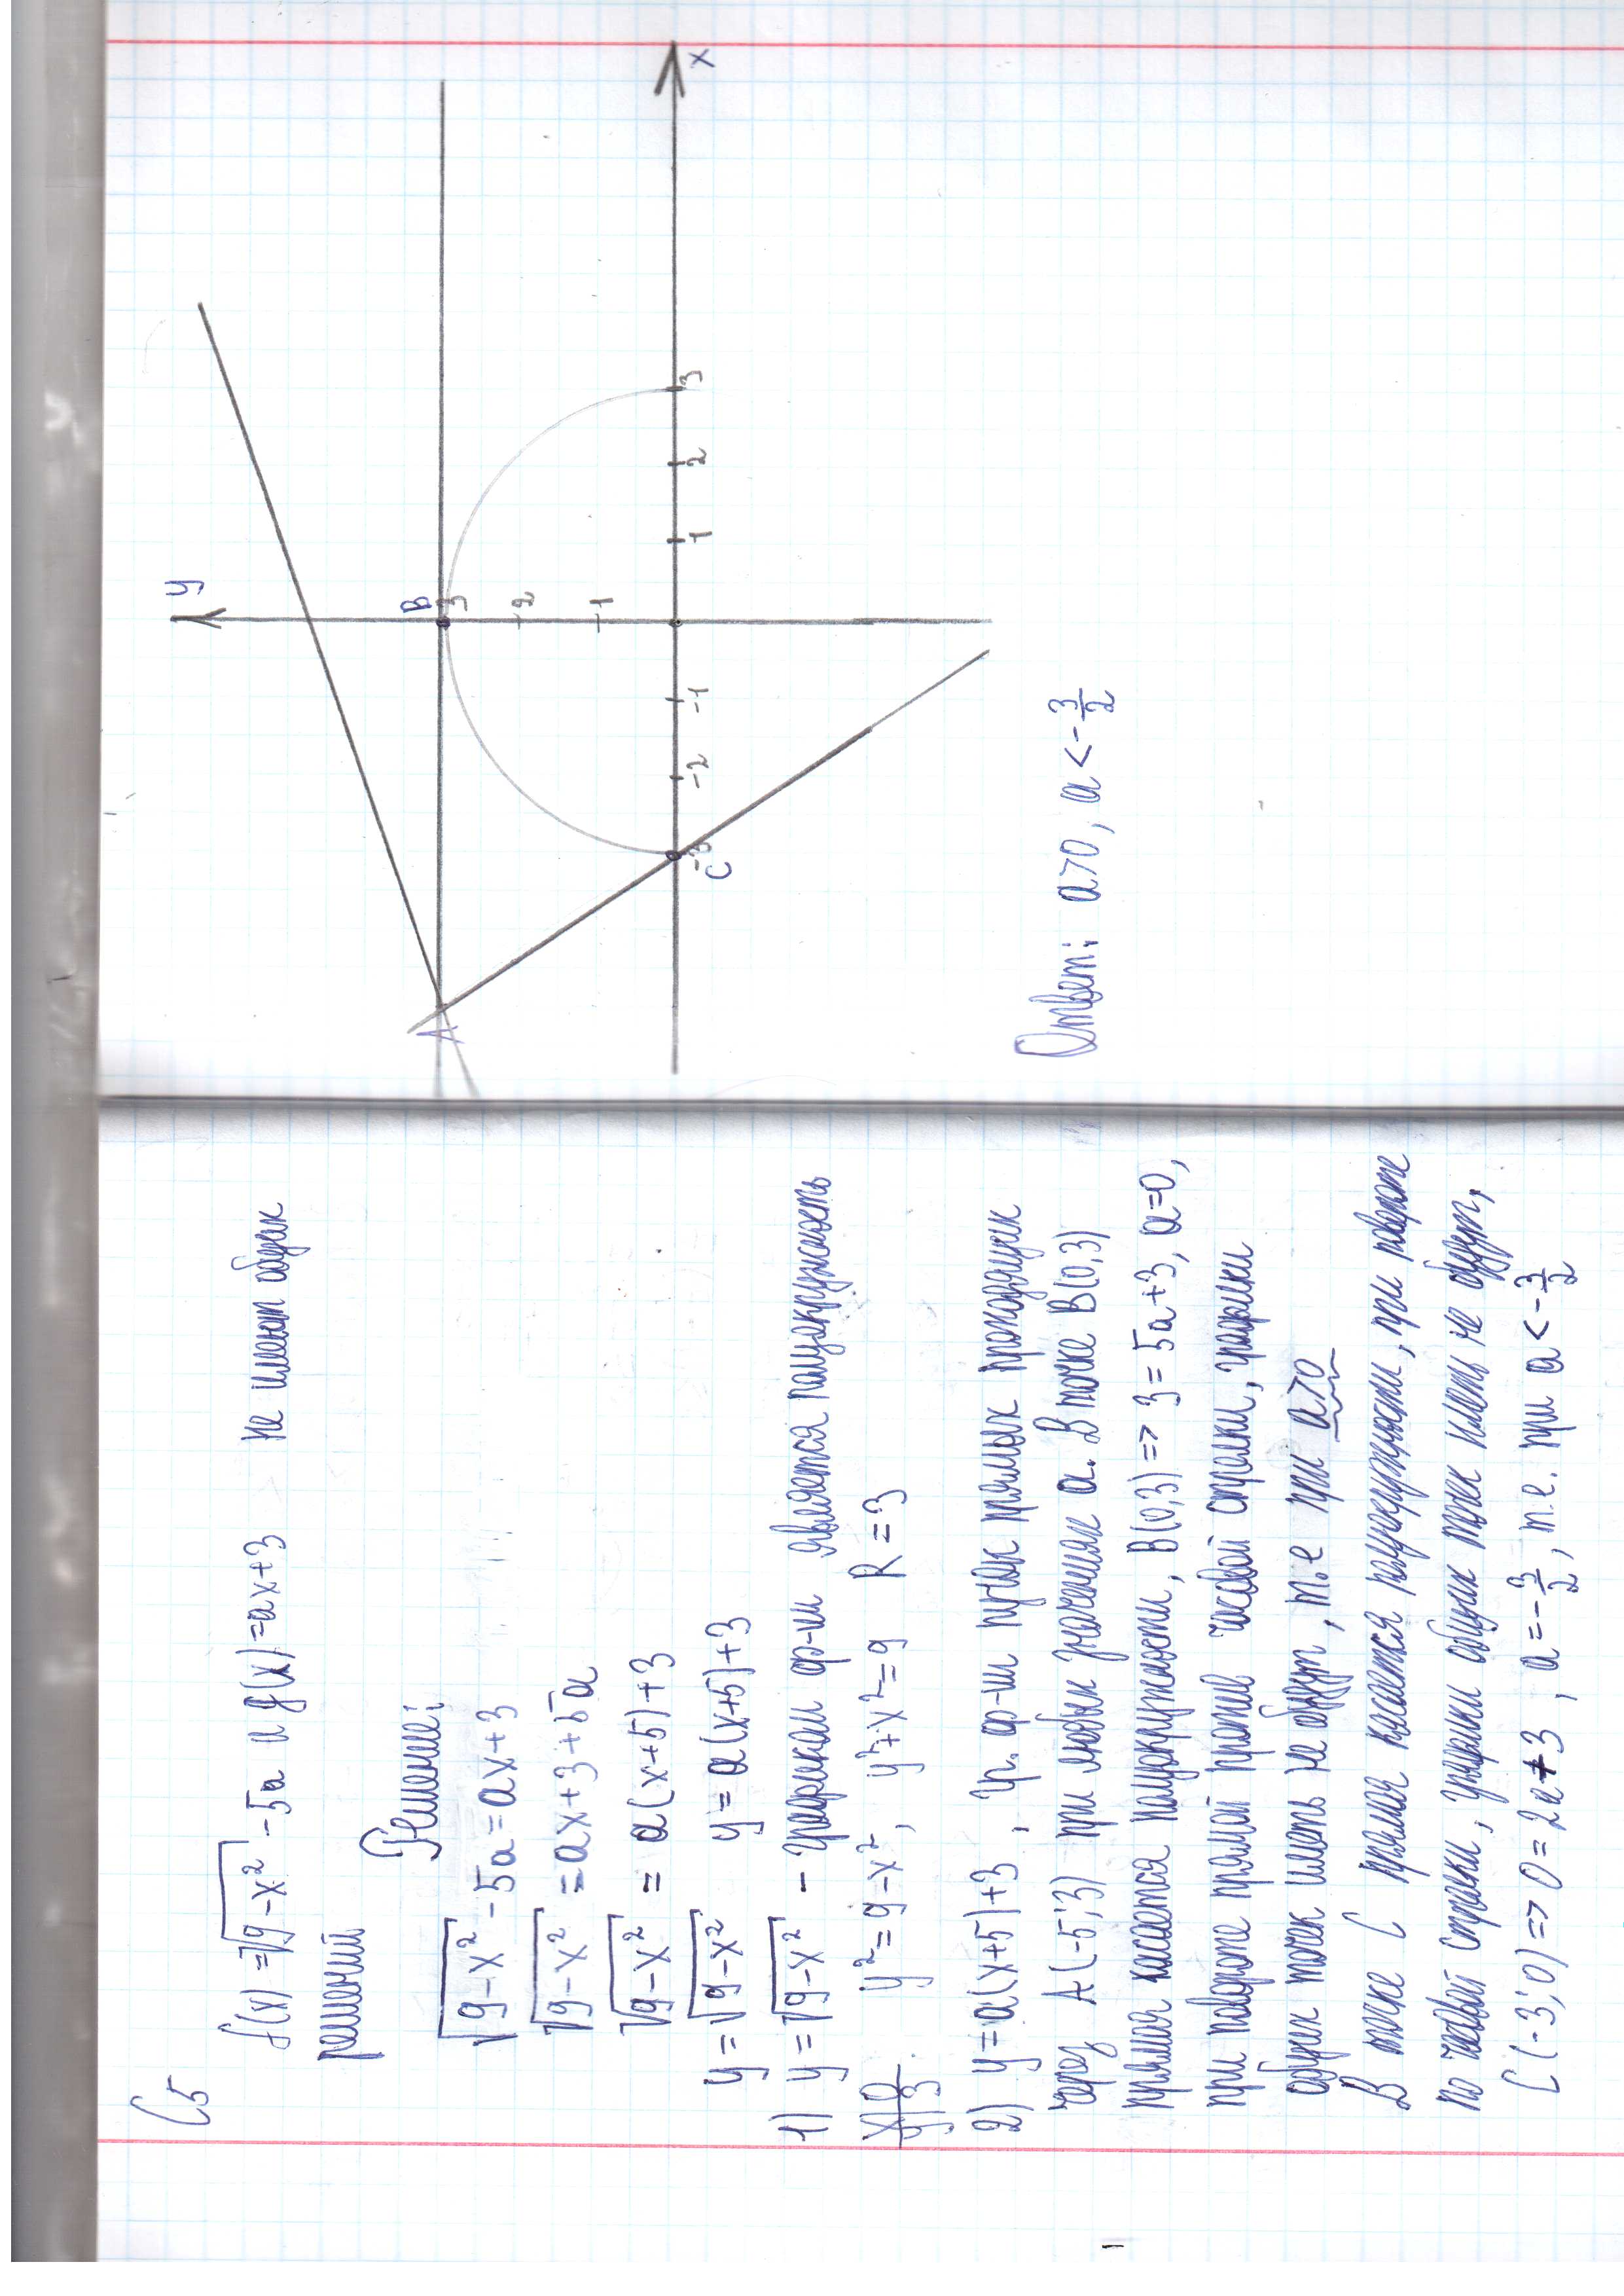 С5
f(x) = √9-x² -5a и g(x)=ax+3 не имеют общих
решений
Решение:
√9-x² -5a = ax+3
√9-x² = ax+3+5a
√9-x² = a(x+5)+3
y=√9-x² y=a(x+5)+3
1) y=√9-x² - графиком ф-ии является полуокружность
x|0
y|3
y²=9-x², y²+x²=9 R=3
2) y=a(x+5)+3, гр. ф-ии пучок прямых проходящих
через A(-5;3) при любых значениях a. В точке B(0,3)
прямая касается полуокружности, B(0,3) => 3=5a+3, a=0,
при повороте прямой против часовой стрелки, графики
общих точек иметь не будут, т.е при a>0
В точке C прямая касается полуокружности, при повороте
по часовой стрелки, графики общих точек иметь не будут,
C(-3;0) => 0=2a+3, a=-3/2, т.е. при a<-3/2
y
B
3
2
1
A
-3
-2
-1
1
2
3
x
C
Ответ: a>0, a<-3/2